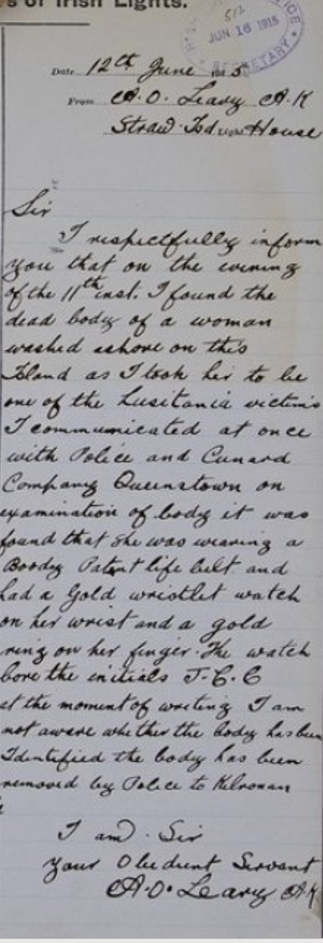 s of Irish Lights.
512
JUN 16 1915
SECRETARY
Date 12th June 1915
From A. O. Leary A.K
Straw Isd Light House
Sir
I respectfully inform
you that on the evening
of the 11th inst. I found the
dead body of a woman
washed ashore on this
Island as I took her to be
one of the Lusitania victims
I communicated at once
with Police and Cunard
Company Queenstown on
examination of body it was
found that she was wearing a
Boody Patent life belt and
had a Gold wristlet watch
on her wrist and a gold
ring on her finger. The watch
bore the initials J. C. C
at the moment of writing I am
not aware whether the body has been
Identified the body has been
removed by Police to Kilronan
I am. Sir
your Obedient Servant
A. O. Leary AK